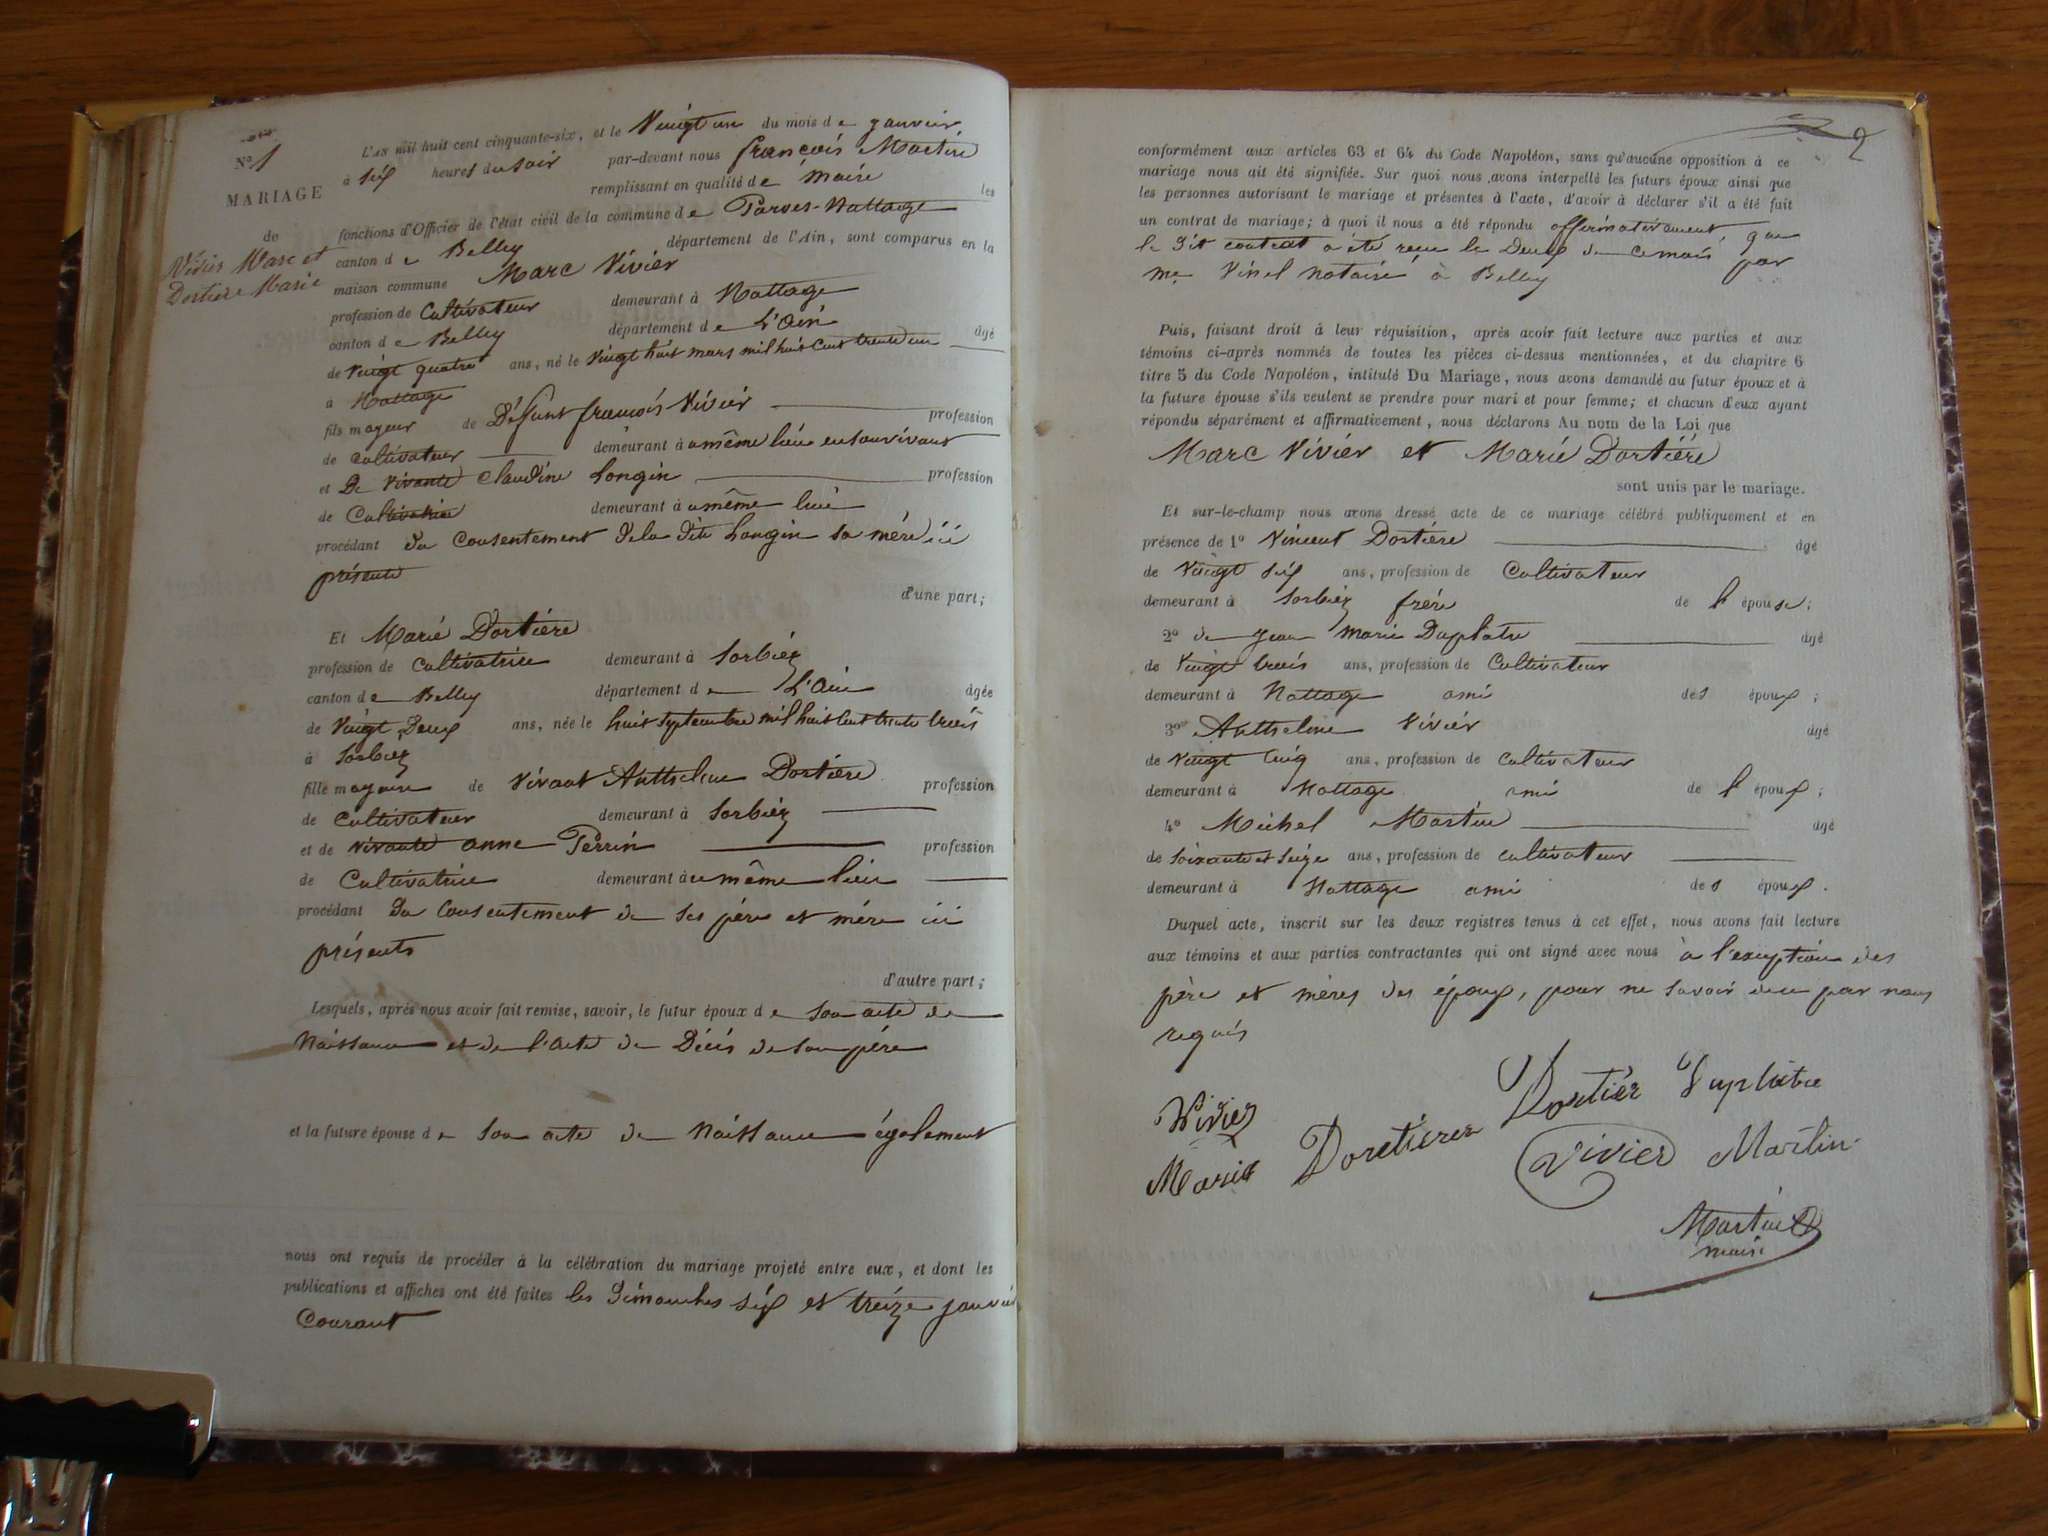 N° 1
MARIAGE
de
Vivier Marc et
Dortière Marie
L'AN mil huit cent cinquante-six, et le Vingt un du mois de janvier
à six heures du soir par-devant nous françois Martin
remplissant en qualité de Maire les
fonctions d'Officier de l'état civil de la commune de Parves-Nattage
canton de Belley département de l'Ain, sont comparus en la
maison commune Marc Vivier
profession de Cultivateur demeurant à Nattage
canton de Belley département de L'Ain âgé
de Vingt quatre ans, né le Vingt huit mars mil huit cent trente un
à Nattage
fils majeur de Défunt françois Vivier profession
de cultivateur demeurant à u même lieu en son vivant
et De Vivante Claudine Longin profession
de Cultivatrice demeurant à u même lieu
procédant du consentement de la dite Longin sa mère ici
présente
d'une part;
Et Marie Dortière
profession de cultivatrice demeurant à Sorbiéz
canton de Belley département de L'Ain âgée
de Vingt Deux ans, née le huit septembre mil huit cent trente trois
à Sorbiez
fille majeure de Vivant Anthelme Dortière profession
de Cultivateur demeurant à Sorbiéz
et de vivante anne Perrin profession
de Cultivatrice demeurant à u même lieu
procédant du consentement de ses père et mère ici
présents
d'autre part;
Lesquels, après nous avoir fait remise, savoir, le futur époux de son acte de
Naissance et de l'acte de Décès de son père
et la future épouse de son acte de Naissance également
nous ont requis de procéder à la célébration du mariage projeté entre eux, et dont les
publications et affiches ont été faites les Dimanches six et treize janvier
Courant
2
conformément aux articles 63 et 64 du Code Napoléon, sans qu'aucune opposition à ce
mariage nous ait été signifiée. Sur quoi nous avons interpellé les futurs époux ainsi que
les personnes autorisant le mariage et présentes à l'acte, d'avoir à déclarer s'il a été fait
un contrat de mariage; à quoi il nous a été répondu affirmativement, que
le dit contrat a été reçu le Deux de ce mois par
me Vinel notaire à Belley
Puis, faisant droit à leur réquisition, après avoir fait lecture aux parties et aux
témoins ci-après nommés de toutes les pièces ci-dessus mentionnées, et du chapitre 6
titre 5 du Code Napoléon, intitulé Du Mariage, nous avons demandé au futur époux et à
la future épouse s'ils veulent se prendre pour mari et pour femme; et chacun d'eux ayant
répondu séparément et affirmativement, nous déclarons Au nom de la Loi que
Marc Vivier et Marie Dortière
sont unis par le mariage.
Et sur-le-champ nous avons dressé acte de ce mariage célébré publiquement et en
présence de 1° Vincent Dortière âgé
de Vingt six ans, profession de Cultivateur
demeurant à Sorbiéz frère de l'épouse;
2° de jean marie Duplatre âgé
de Vingt trois ans, profession de Cultivateur
demeurant à Nattage ami des époux;
3° Anthelme Vivier âgé
de vingt cinq ans, profession de cultivateur
demeurant à Nattage ami de l'époux;
4° Michel Martin âgé
de soixante et seize ans, profession de cultivateur
demeurant à Nattage ami des époux.
Duquel acte, inscrit sur les deux registres tenus à cet effet, nous avons fait lecture
aux témoins et aux parties contractantes qui ont signé avec nous à l'exception des
père et mères des époux, pour ne savoir de ce par nous
requis
Vivier Dortièr Duplatre
Marie Doretierer Vivier Martin
Martin
maire